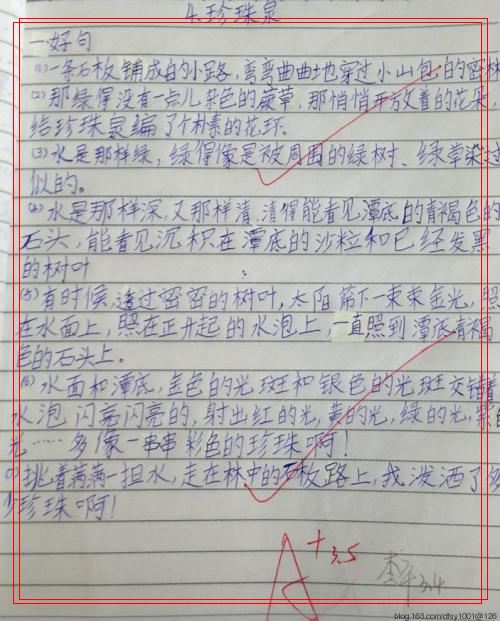 4.珍珠泉
一好句
(1)一条石板铺成的小路,弯弯曲曲地穿过小山包的密林
(2)那绿得没有一点儿杂色的蕨草,那悄悄开放着的花朵,
给珍珠泉编了个朴素的花环。
(3)水是那样绿,绿得像是被周围的绿树、绿草染过
似的。
(4)水是那样深,又那样清,清得能看见潭底的青褐色的
石头,能看见沉积在潭底的沙粒和已经发黑
的树叶
(5)有时候,透过密密的树叶,太阳筛下一束束金光,照
在水面上,照在正升起的水泡上,一直照到潭底青褐
色的石头上。
(6)水面和潭底,金色的光斑和银色的光斑交错着
水泡闪亮闪亮的,射出红的光,黄的光,绿的光,紫的
光……多像一串串彩色的珍珠啊!
(7)挑着满满一担水,走在林中的石板路上,我泼洒了多
少珍珠啊!
A+ 3.5
3.4
blog.163.com/dfsy1001@126